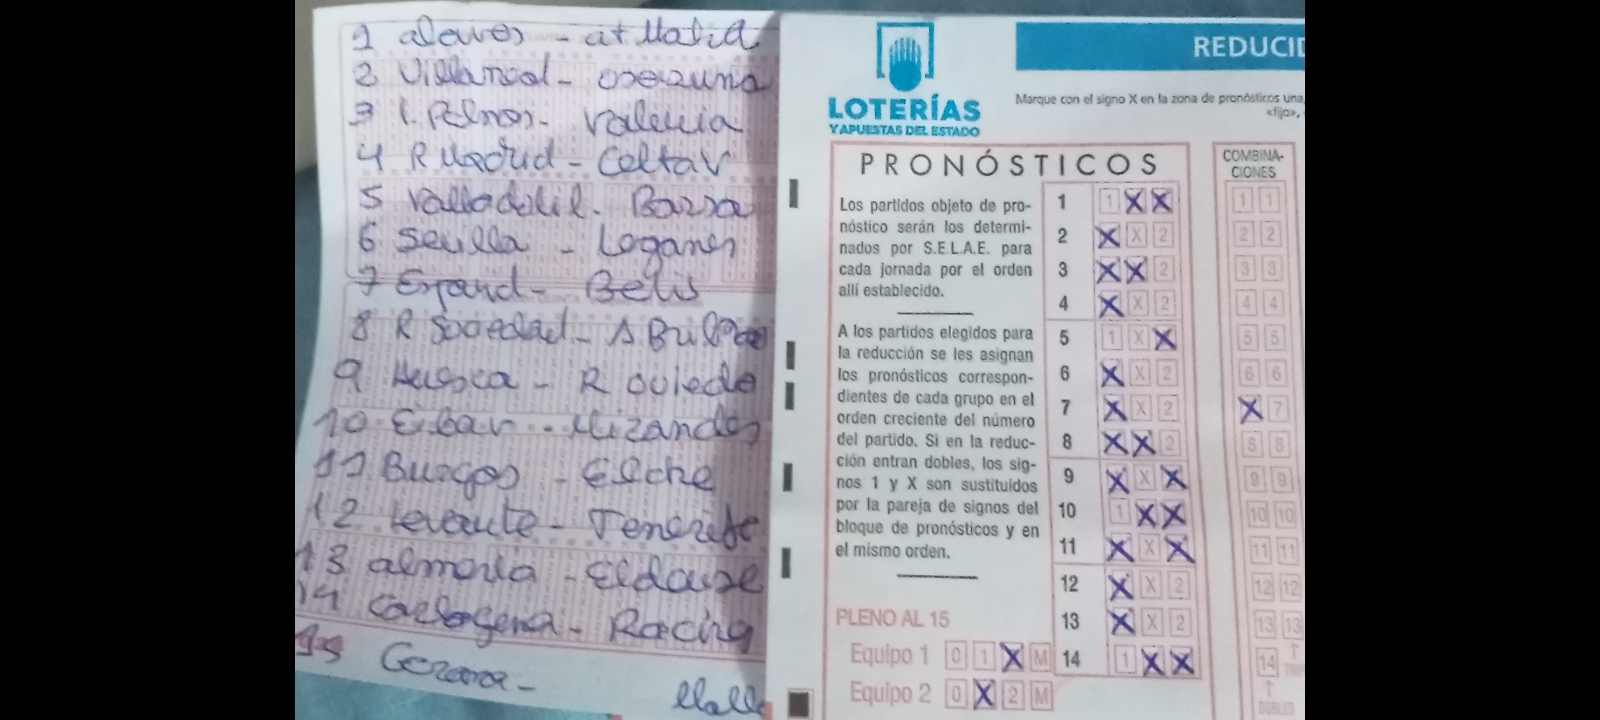 1 alaves - at Madrid
2 Villareal - Osasuna
3 l. Palmas - Valencia
4 R Madrid - Celtav
5 Valladolil. Barsa
6 Sevilla - Leganes
7 Español - Betis
8 R Sociedad - A Bilbao
9 Huesca - R oviedo
10 Eibar - Mirandes
11 Burgos - Elche
12 Levante - Tenerife
13 almeria - Eldense
14 Cartagena - Racing
15 Gerona -
LOTERÍAS
Y APUESTAS DEL ESTADO
REDUCI
Marque con el signo X en la zona de pronósticos una,
«fijo»,
PRONÓSTICOS
COMBINA-
CIONES
Los partidos objeto de pro-
nóstico serán los determi-
nados por S.E.L.A.E. para
cada jornada por el orden
allí establecido.
A los partidos elegidos para
la reducción se les asignan
los pronósticos correspon-
dientes de cada grupo en el
orden creciente del número
del partido. Si en la reduc-
ción entran dobles, los sig-
nos 1 y X son sustituidos
por la pareja de signos del
bloque de pronósticos y en
el mismo orden.
1 1 X X 1 1
2 X X 2 2 2
3 X X 2 3 3
4 X X 2 4 4
5 1 X X 5 5
6 X X 2 6 6
7 X X 2 X 7
8 X X 2 8 8
9 X X X 9 9
10 1 X X 10 10
11 X X X 11 11
12 X X 2 12 12
13 X X 2 13 13
14 1 X X 14
PLENO AL 15
Equipo 1 0 1 X M
Equipo 2 0 X 2 M
DOBLES